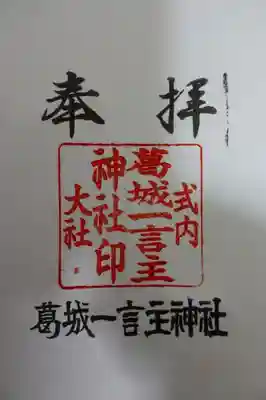 奉拝
式内
大社
葛城一言主
神社印
葛城一言主神社